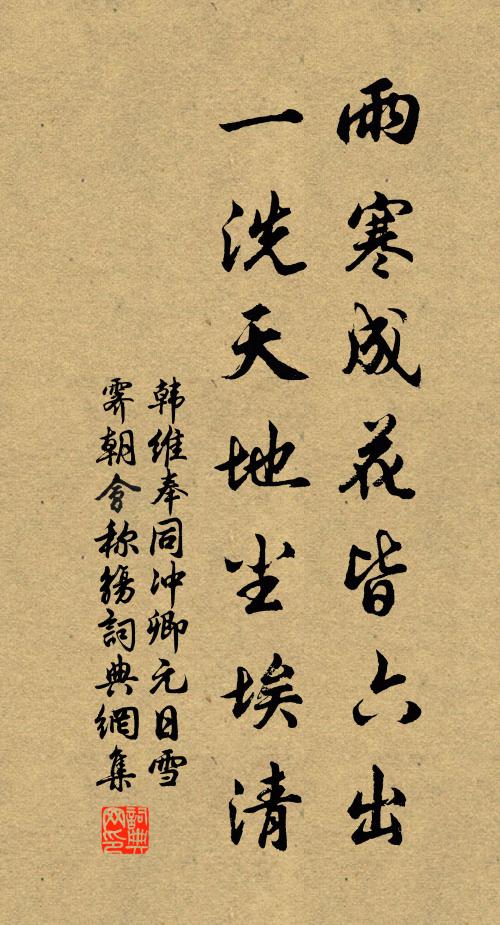 雨寒成花皆六出
一洗天地尘埃清
韩维奉同冲卿元日雪
霁朝会称觞詞典網集
詞典网印